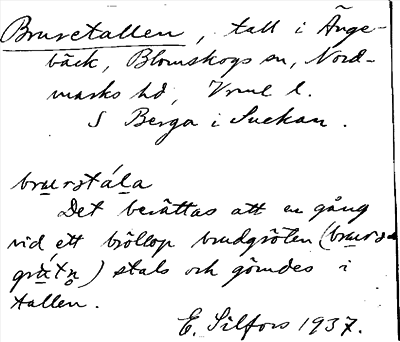 Bruretallen, tall i Ånge-
bäck, Blomskogs sn, Nord-
marks hd, Vrml l.
S Berga i Suckan.
brurstála
Det berättas att en gång
vid ett bröllop brudgröten (brurs
grǘtn) stals och gömdes i
tallen.
E. Silfors 1937.